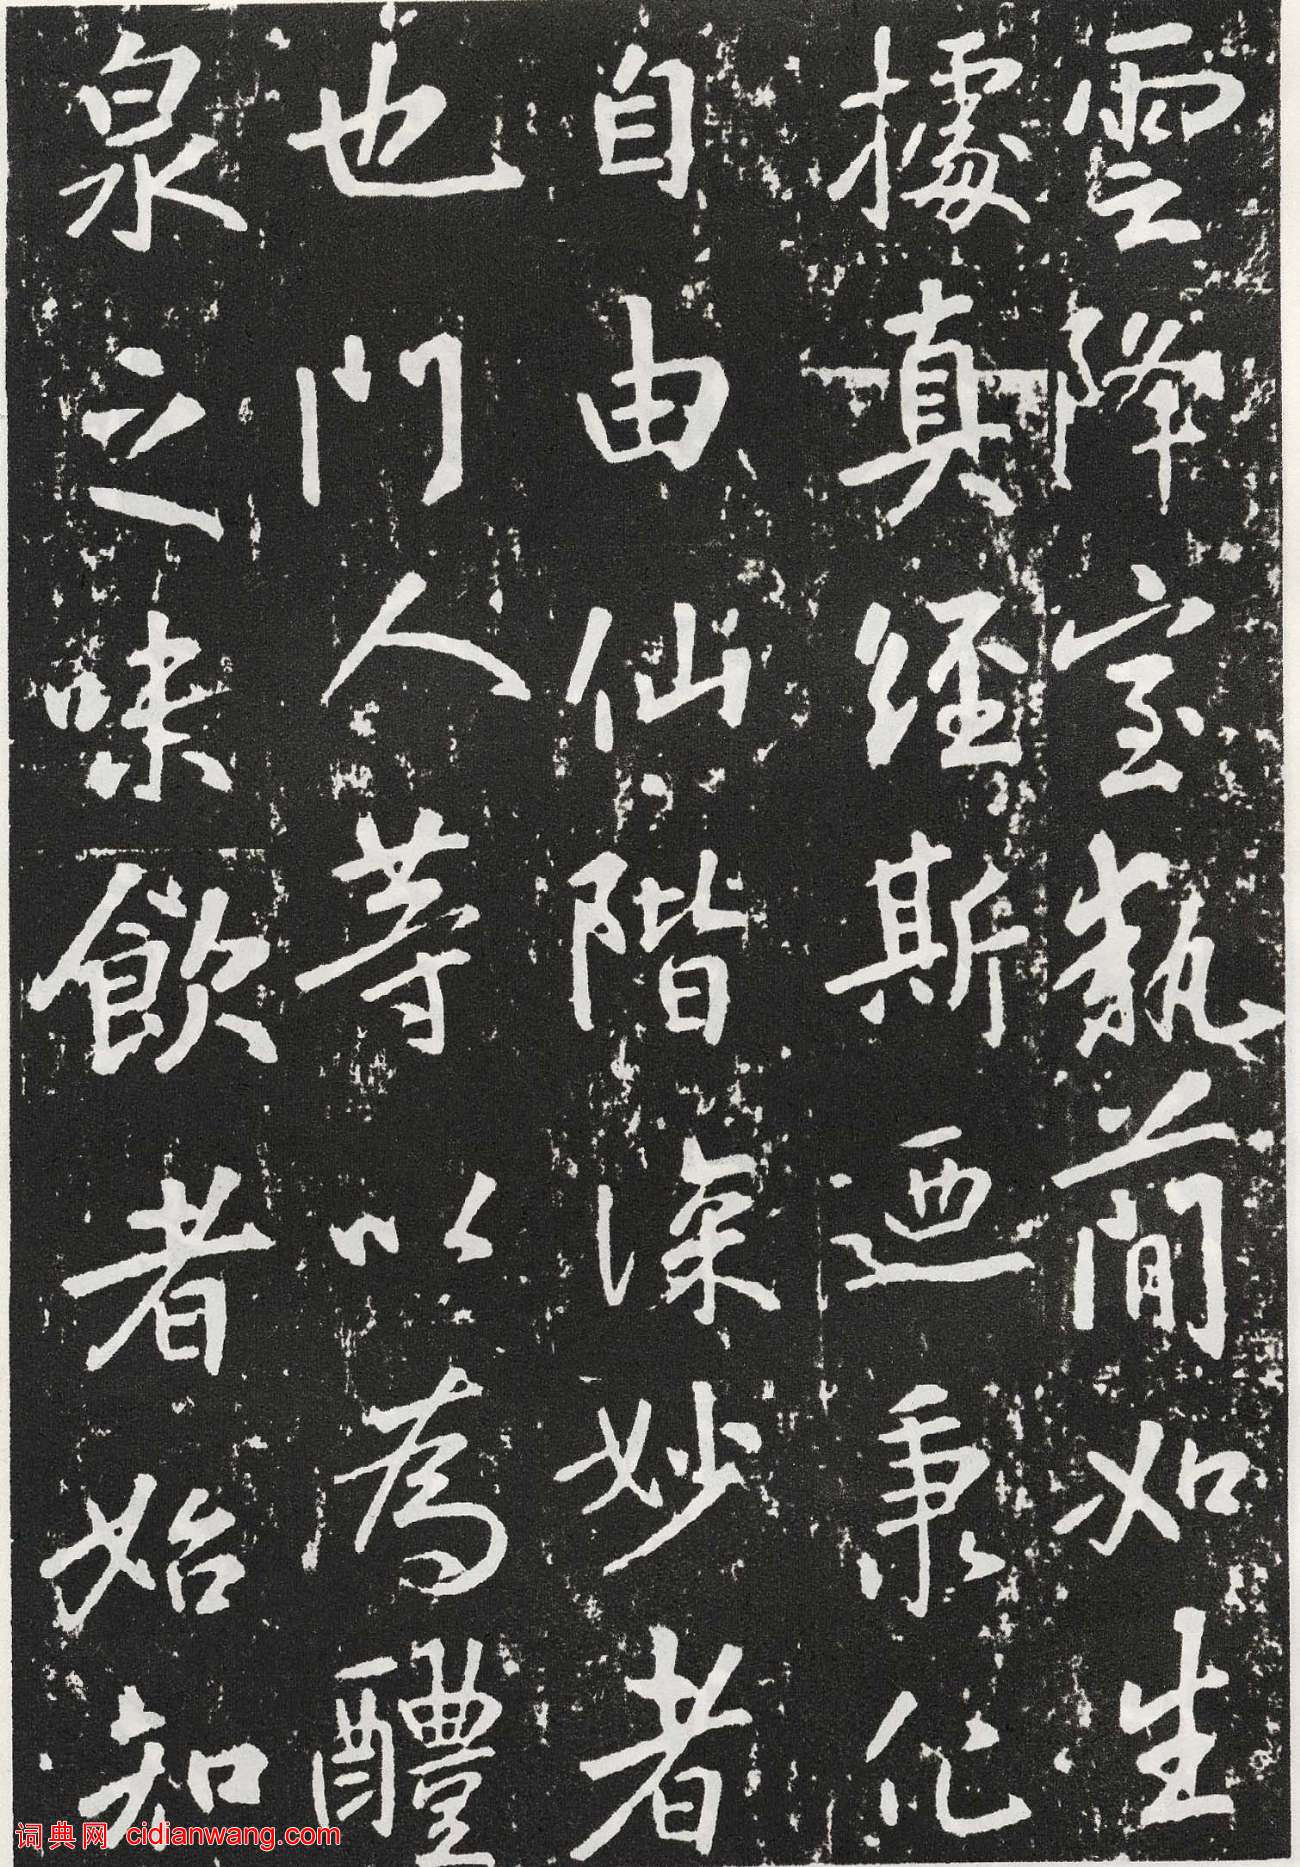 雲降室執簡如生
據真經斯迺秉化
自由仙階深妙者
也門人等以為醴
泉之味飲者始知
词典网 cidianwang.com